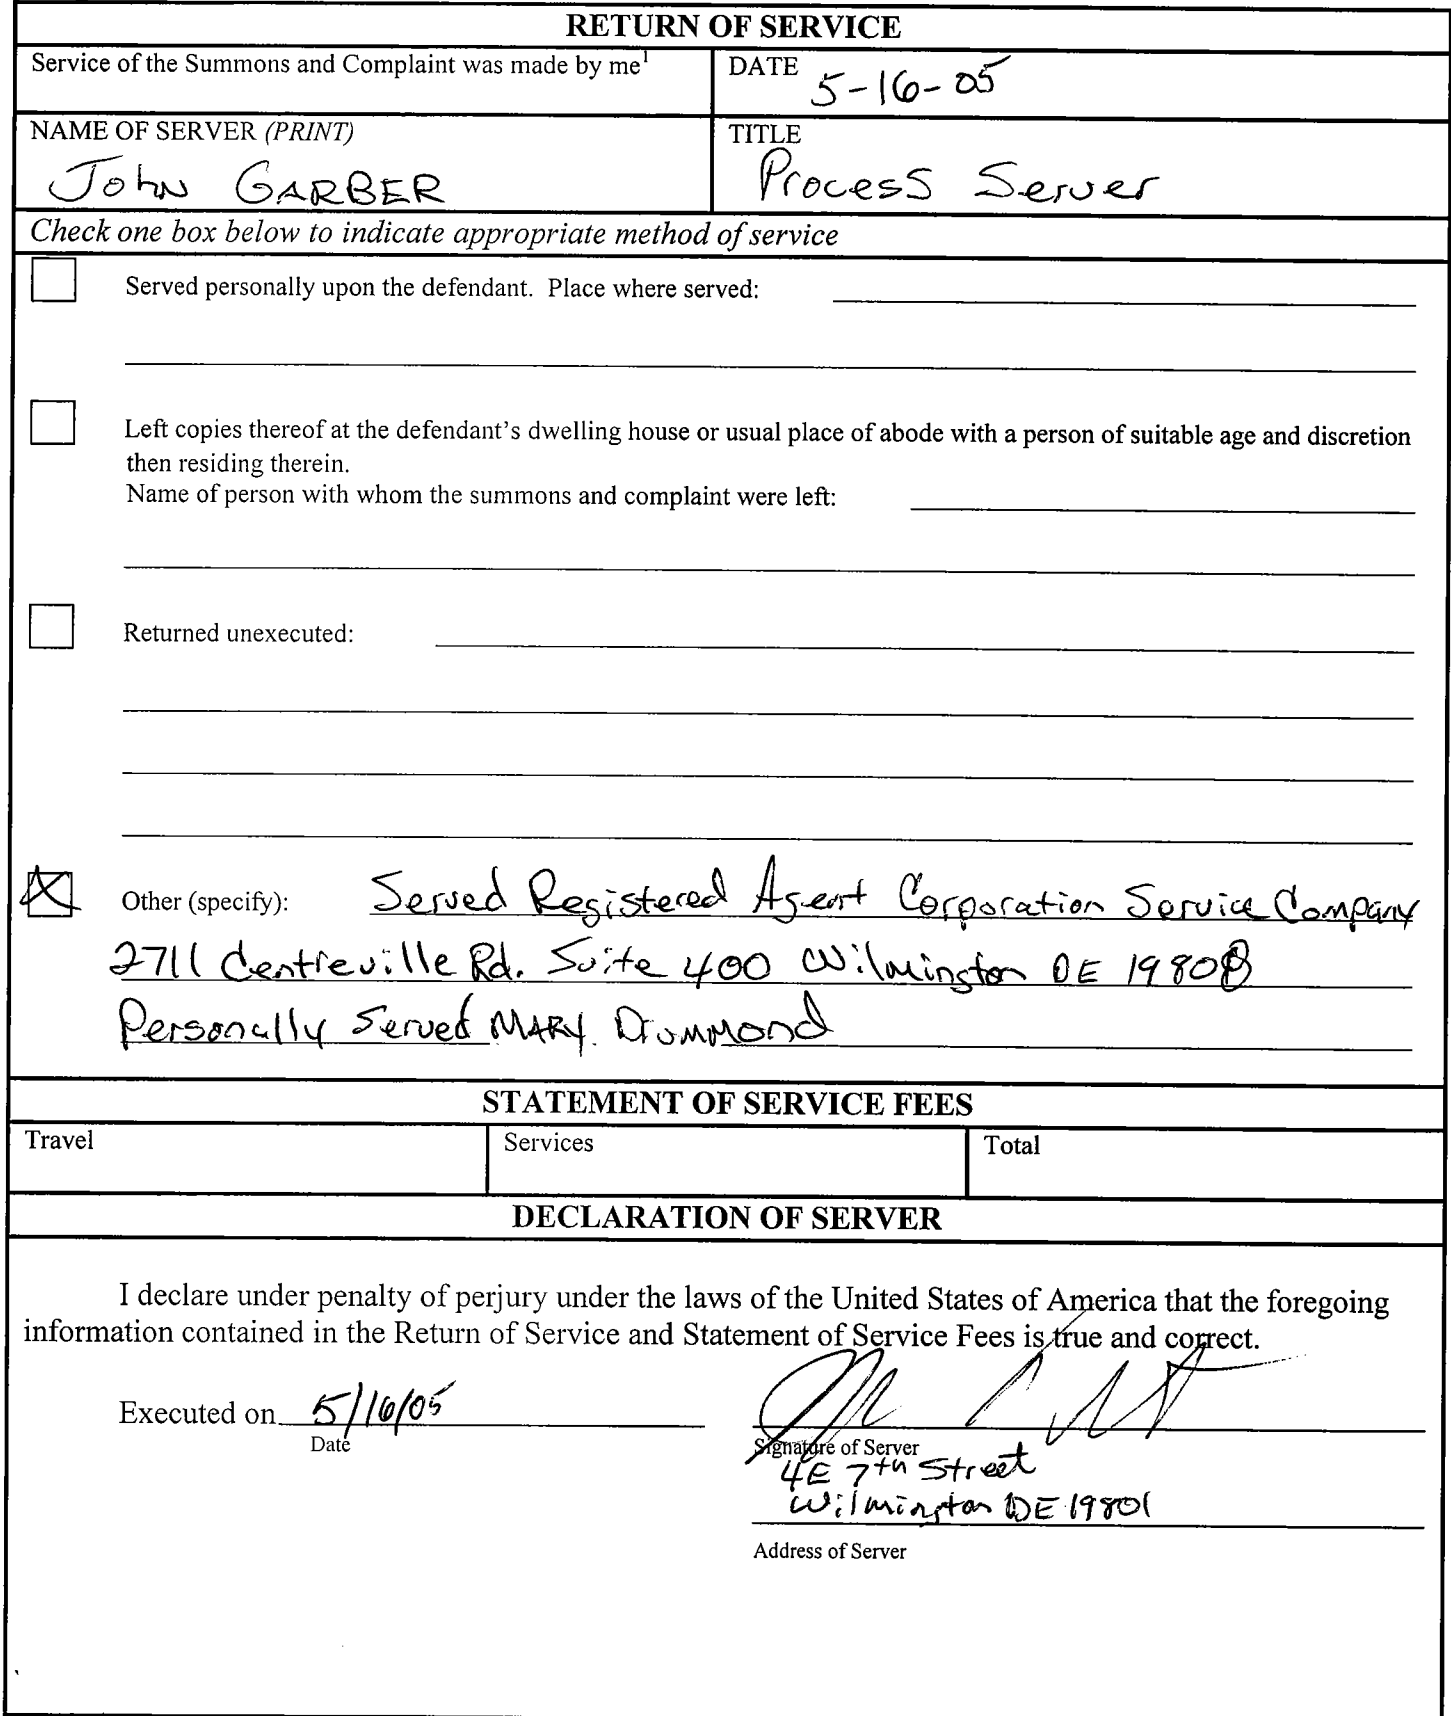 RETURN OF SERVICE
Service of the Summons and Complaint was made by me1
DATE 5-16-05
NAME OF SERVER (PRINT)
John GARBER
TITLE
Process Server
Check one box below to indicate appropriate method of service
Served personally upon the defendant. Place where served:
Left copies thereof at the defendant's dwelling house or usual place of abode with a person of suitable age and discretion
then residing therein.
Name of person with whom the summons and complaint were left:
Returned unexecuted:
Other (specify): Served Registered Agent Corporation Service Company
2711 Centreville Rd. Suite 400 Wilmington DE 19808
Personally Served MARY Drummond
STATEMENT OF SERVICE FEES
Travel
Services
Total
DECLARATION OF SERVER
I declare under penalty of perjury under the laws of the United States of America that the foregoing
information contained in the Return of Service and Statement of Service Fees is true and correct.
Executed on 5/16/05
Date
Signature of Server
4E 7th Street
Wilmington DE 19801
Address of Server